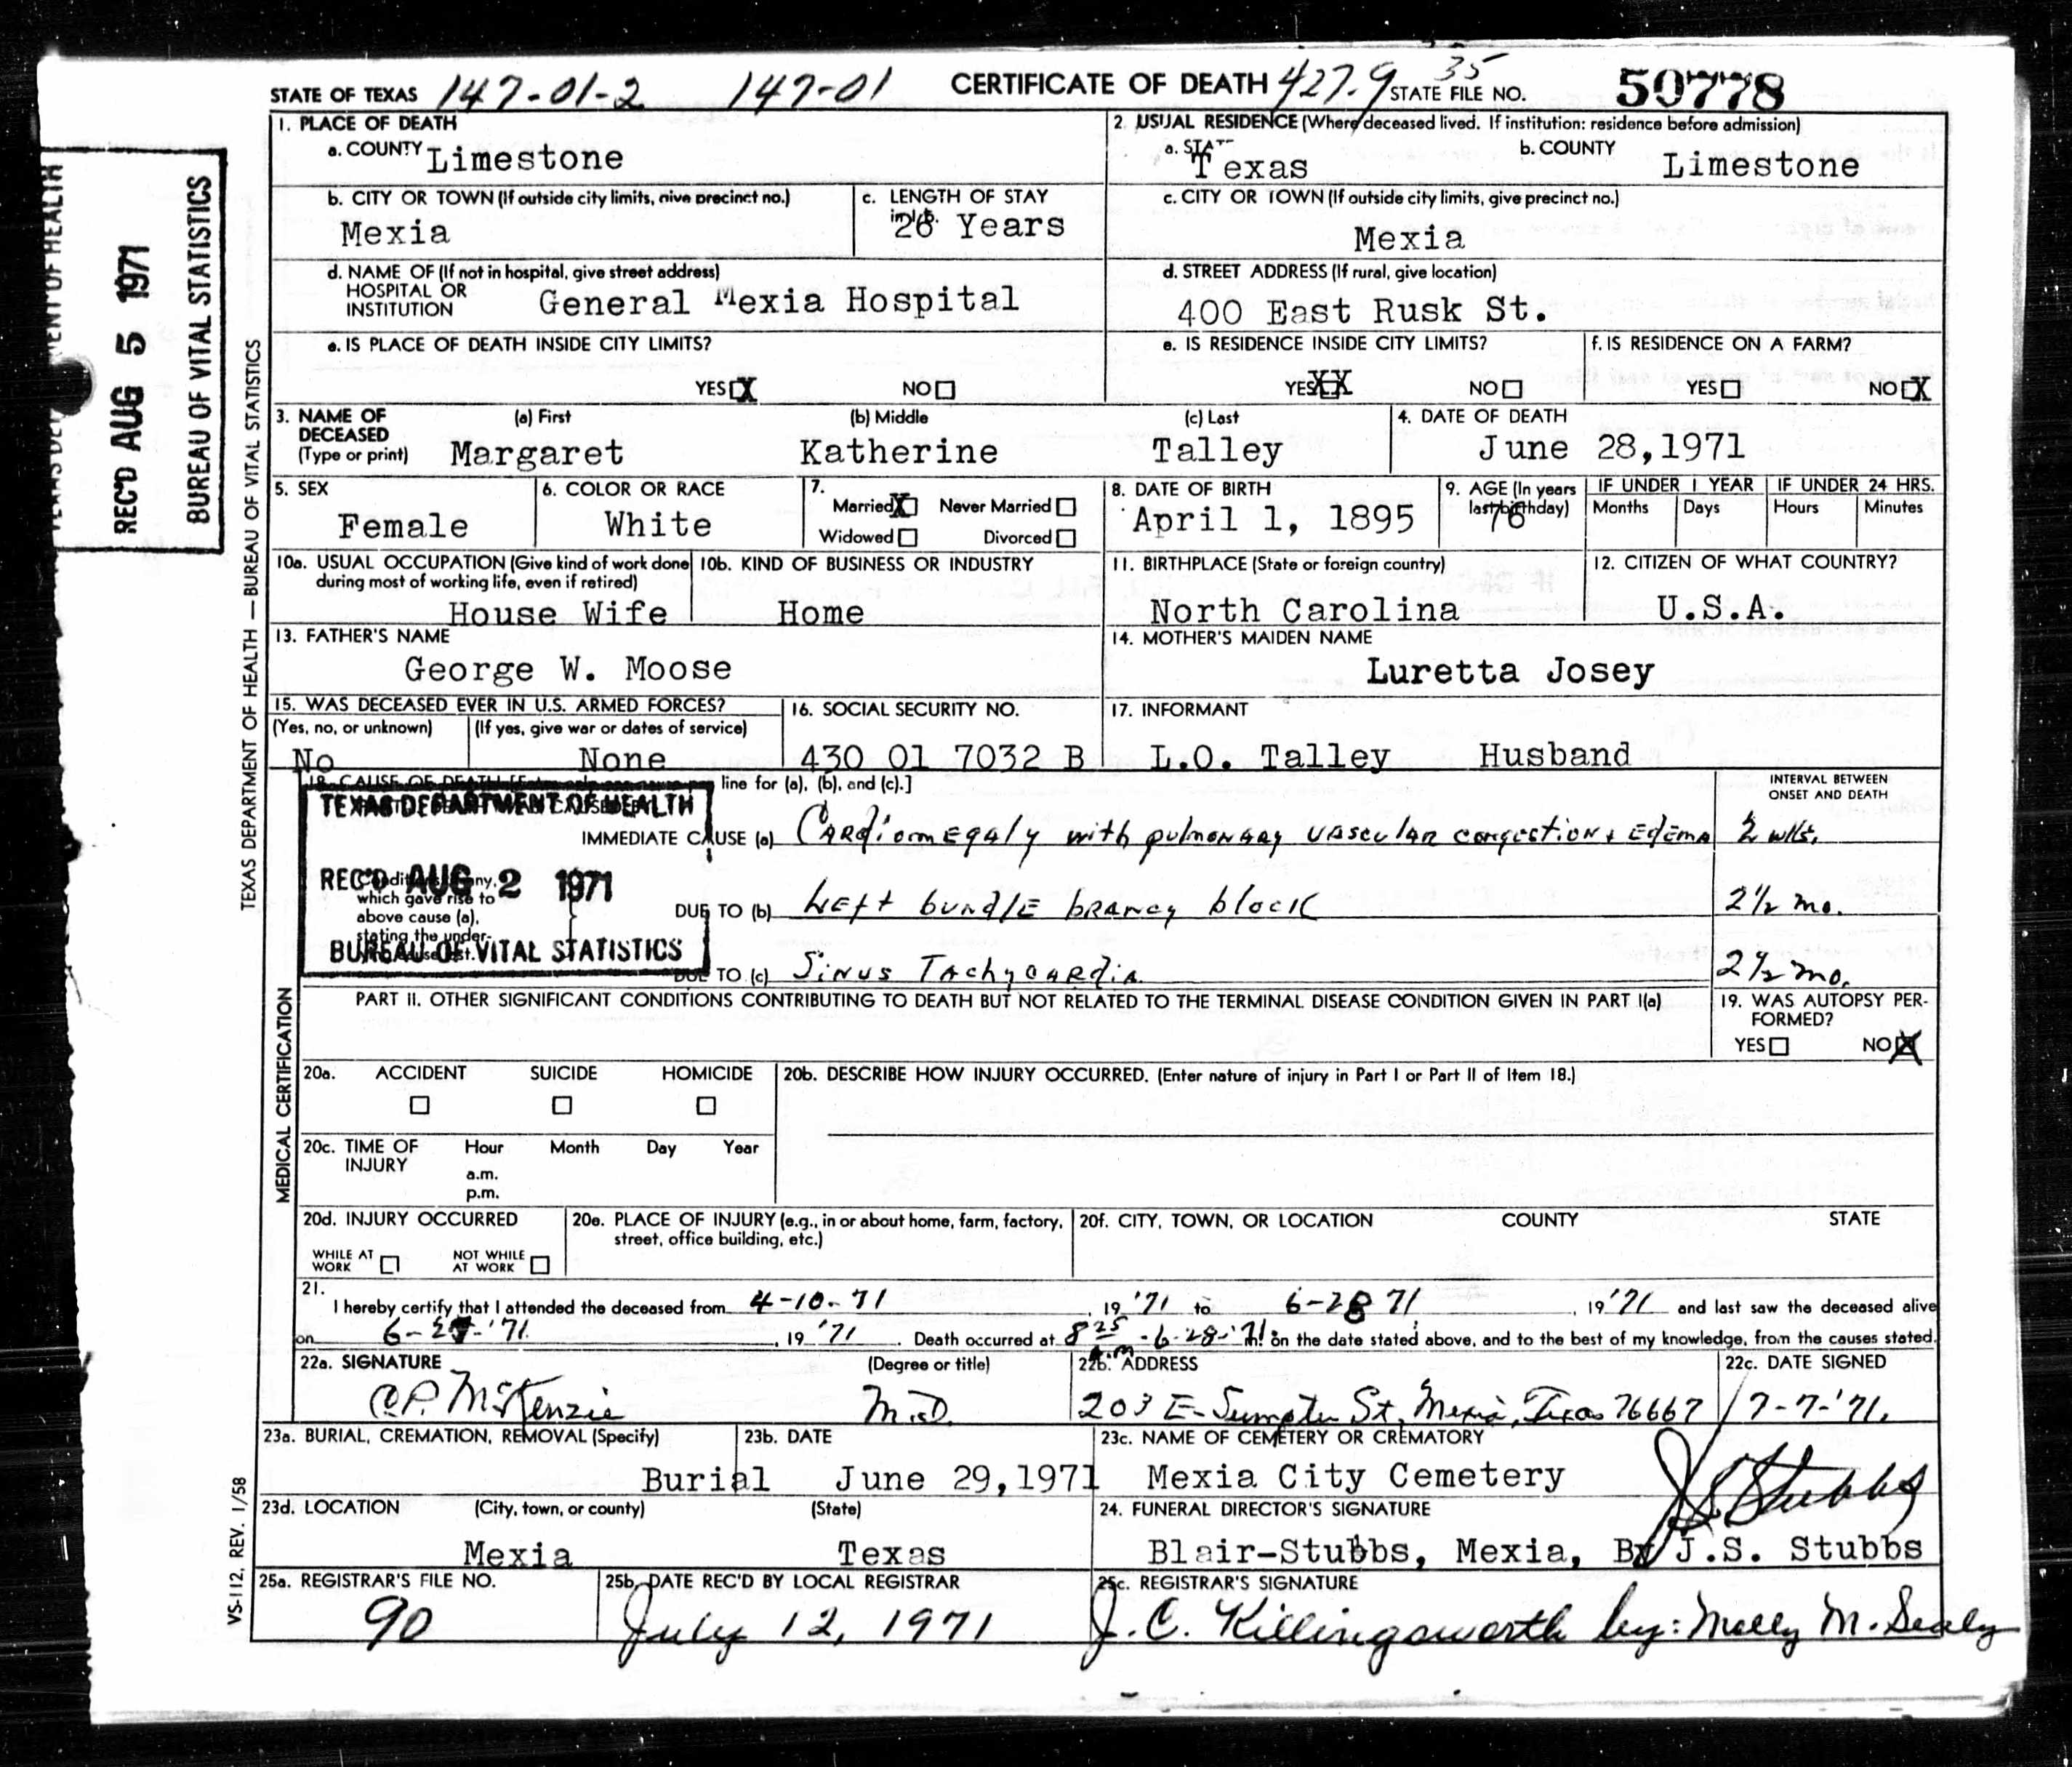 STATE OF TEXAS 147-01-2 147-01 CERTIFICATE OF DEATH 427.9 35 STATE FILE NO. 50778
1. PLACE OF DEATH
a. COUNTY Limestone
2. USUAL RESIDENCE (Where deceased lived. If institution: residence before admission)
a. STATE Texas b. COUNTY Limestone
b. CITY OR TOWN (If outside city limits, give precinct no.)
Mexia
c. LENGTH OF STAY
26 Years
c. CITY OR TOWN (If outside city limits, give precinct no.)
Mexia
d. NAME OF (If not in hospital, give street address)
HOSPITAL OR
INSTITUTION General Mexia Hospital
d. STREET ADDRESS (If rural, give location)
400 East Rusk St.
e. IS PLACE OF DEATH INSIDE CITY LIMITS?
YES X NO
e. IS RESIDENCE INSIDE CITY LIMITS?
YES XX NO
f. IS RESIDENCE ON A FARM?
YES NO X
3. NAME OF (a) First (b) Middle (c) Last
DECEASED
(Type or print) Margaret Katherine Talley
4. DATE OF DEATH
June 28,1971
5. SEX
Female
6. COLOR OR RACE
White
7.
Married X Never Married
Widowed Divorced
8. DATE OF BIRTH
April 1, 1895
9. AGE (In years
last birthday)
76
IF UNDER 1 YEAR IF UNDER 24 HRS.
Months Days Hours Minutes
10a. USUAL OCCUPATION (Give kind of work done
during most of working life, even if retired)
House Wife
10b. KIND OF BUSINESS OR INDUSTRY
Home
11. BIRTHPLACE (State or foreign country)
North Carolina
12. CITIZEN OF WHAT COUNTRY?
U.S.A.
13. FATHER'S NAME
George W. Moose
14. MOTHER'S MAIDEN NAME
Luretta Josey
15. WAS DECEASED EVER IN U.S. ARMED FORCES?
(Yes, no, or unknown) (If yes, give war or dates of service)
No None
16. SOCIAL SECURITY NO.
430 01 7032 B
17. INFORMANT
L.O. Talley Husband
18. CAUSE OF DEATH line for (a), (b), and (c).]
INTERVAL BETWEEN
ONSET AND DEATH
TEXAS DEPARTMENT OF HEALTH
REC'D AUG 2 1971
BUREAU OF VITAL STATISTICS
IMMEDIATE CAUSE (a) Cardiomegaly with pulmonary vascular congestion & Edema 2 wks.
which gave rise to
above cause (a),
stating the under-
DUE TO (b) Left bundle branch block 2½ mo.
DUE TO (c) Sinus Tachycardia 2½ mo.
PART II. OTHER SIGNIFICANT CONDITIONS CONTRIBUTING TO DEATH BUT NOT RELATED TO THE TERMINAL DISEASE CONDITION GIVEN IN PART I(a)
19. WAS AUTOPSY PER-
FORMED?
YES NO X
20a. ACCIDENT SUICIDE HOMICIDE
20b. DESCRIBE HOW INJURY OCCURRED. (Enter nature of injury in Part I or Part II of Item 18.)
20c. TIME OF Hour Month Day Year
INJURY
a.m.
p.m.
20d. INJURY OCCURRED
WHILE AT WORK NOT WHILE AT WORK
20e. PLACE OF INJURY (e.g., in or about home, farm, factory,
street, office building, etc.)
20f. CITY, TOWN, OR LOCATION COUNTY STATE
21.
I hereby certify that I attended the deceased from 4-10-71, 19 '71 to 6-28 71, 19 '71 and last saw the deceased alive
on 6-27-'71, 19 '71. Death occurred at 8 25 a.m - 6-28-'71 m. on the date stated above, and to the best of my knowledge, from the causes stated.
22a. SIGNATURE (Degree or title)
C.P. McKenzie M.D.
22b. ADDRESS
203 E. Sumpter St. Mexia, Texas 76667
22c. DATE SIGNED
7-7-'71.
23a. BURIAL, CREMATION, REMOVAL (Specify)
Burial
23b. DATE
June 29,1971
23c. NAME OF CEMETERY OR CREMATORY
Mexia City Cemetery
23d. LOCATION (City, town, or county) (State)
Mexia Texas
24. FUNERAL DIRECTOR'S SIGNATURE
J S Stubbs
Blair-Stubbs, Mexia, By J.S. Stubbs
25a. REGISTRAR'S FILE NO.
90
25b. DATE REC'D BY LOCAL REGISTRAR
July 12, 1971
25c. REGISTRAR'S SIGNATURE
J. C. Killingsworth by: Molly M. Sealy
REC'D AUG 5 1971
BUREAU OF VITAL STATISTICS
TEXAS DEPARTMENT OF HEALTH — BUREAU OF VITAL STATISTICS
MEDICAL CERTIFICATION
VS-112, REV. 1/58